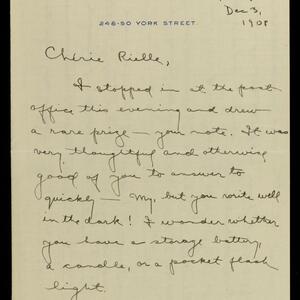 Dec 3,
1908
248-50 YORK STREET.
Chérie Rielle,
I stopped in at the post
office this evening and drew
a rare prize — your note. It was
very thoughtful and otherwise
good of you to answer so
quickly — My, but you write well
in the dark! I wonder whether
you have a storage battery,
a candle, or a pocket flash
light.